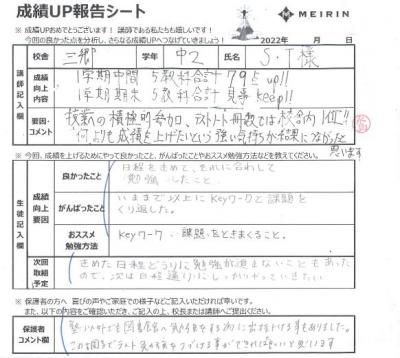 成績UP報告シート
MEIRIN
※ 成績UPおめでとうございます！ 講師である私たちも嬉しいです！
今回の良かった点を分析し、さらなる成績UPへつなげていきましょう！
2022年 月 日
校舎 三郷 学年 中2 氏名 S・T様
講師記入欄
成績向上内容
1学期中間 5教科合計 79点up!!
1学期期末 5教科合計 見事keep!!
要因・コメント
授業の積極的参加、テストノート冊数も校舎内No.1!!
何よりも成績を上げたいという強い気持ちが結果につながったと
思います
※今回、成績を上げるためにやって良かったこと、がんばったことやおススメ勉強方法などを教えてください。
生徒記入欄
成績向上要因
良かったこと
日程をきめて、それに合わして
勉強したこと
がんばったこと
いままで以上にKeyワークと課題を
くり返した。
おススメ勉強方法
Keyワーク、課題をときまくること。
次回取組予定
きめた日程どうりに勉強が進まないこともあった
ので、次は日程通りにしっかりやっていきたい
※ 保護者の方へ 喜びの声やご家庭での様子などご記入いただければ幸いです。
また、以下の内容をご確認いただき、ご記入の上、校長または講師へご提出ください。
保護者コメント欄
塾以外でも図書館
事もありました。